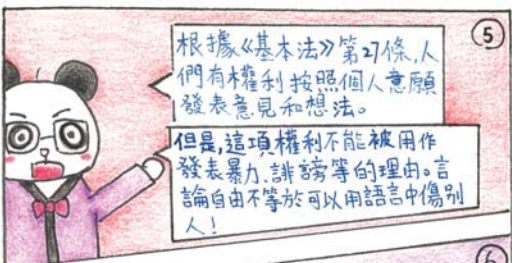 ⑤
根據《基本法》第27條,人
們有權利按照個人意願
發表意見和想法。
但是,這項權利不能被用作
發表暴力、誹謗等的理由。言
論自由不等於可以用語言中傷別
人!
⑥